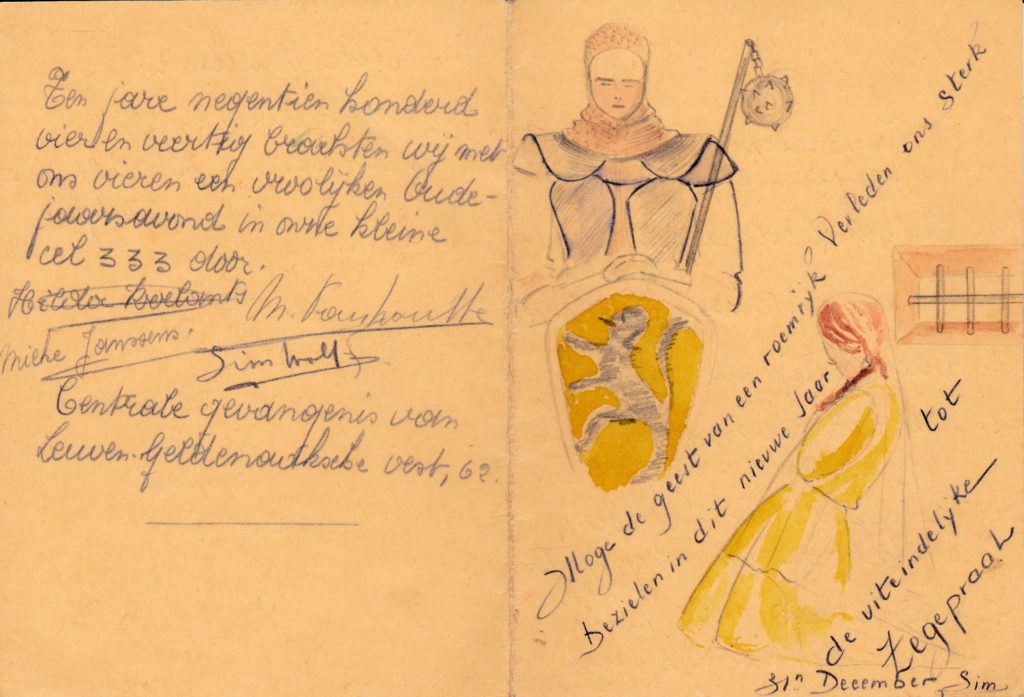 Ten jare negentien honderd
vier en veertig brachten wij met
ons vieren een vroolijken Oude-
jaarsavond in onze kleine
cel 333 door.
Hilda Roelants
M. Vanhoutte
Mieke Janssens.
Sim Wolfs
Centrale gevangenis van
Leuven. Geldenaaksche vest, 62.
Moge de geest van een roemrijk Verleden ons sterk
Bezielen in dit nieuwe Jaar tot
de uiteindelijke
Zegepraal
31n December, Sim